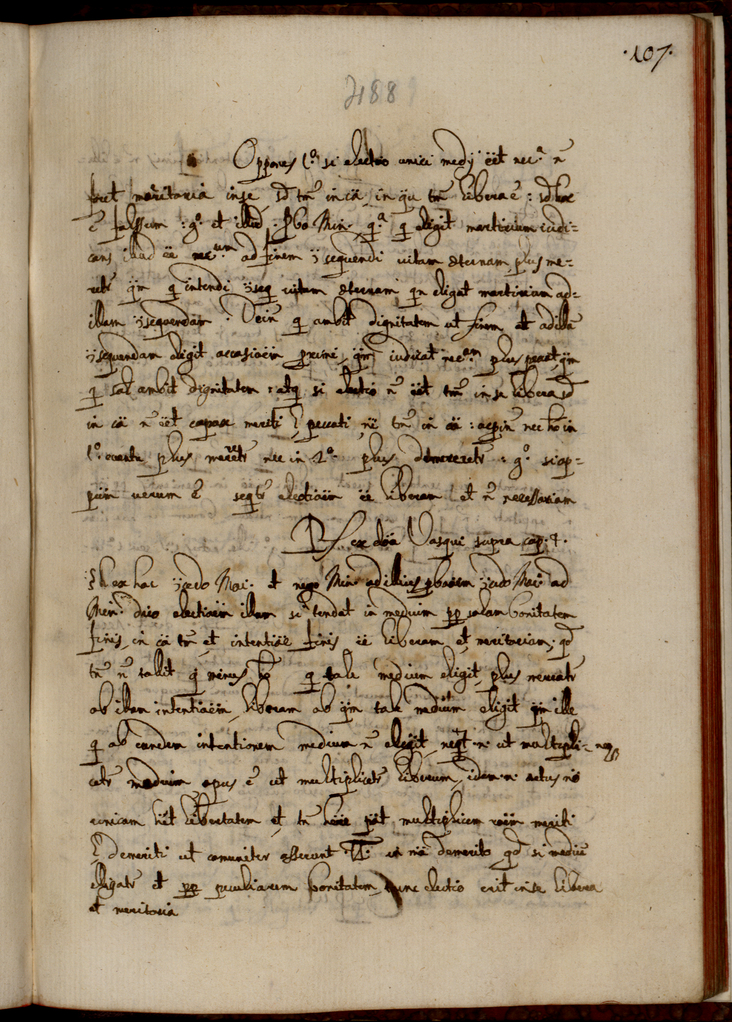 .107.
2188
Oppones 1.º si electio unici medij eēt nec.ª n̄
foret meritoria in se sd tm̄ in cā, in qu tm̄ libera ē : sd hoc
ē falssum : g.º et illud : pbo Min. q.ª q eligit martirium iudi-
cans illud ēe nec.um ad finem ꝯsequendi uitam æternam, plus me-
retr qm̄ q intendit ꝯseq uitam æternam qn eligat martirium ad
illam ꝯsequendam. Dein q ambit dignitatem ut finem, et ad illā
ꝯsequendam eligit occasioēm proximi, qm̄ iudicat nec.am plus peccat, qm̄
q sol ambit dignitatem : atq si electio n̄ eēt tm̄ in se libera sd
in cā n̄ eēt capax meriti & peccati nī tm̄ in cā : ac pin nec ho in
1.º euentu plus meretr nec in 2.º plus demereretr : g.º si op-
pitm uerum ē seqtr electioēm ēe liberam et n̄ necessariam
R. ex doā Vasqui supra cap. 4.
ex hac ꝯcedo Mai. et nego Min. ad illius pbaoēm ꝯcedo Mai. ad
Min. dico electioēm illam si tendat in medium pp solam bonitatem
finis, in cā tm̄ et intentiōe finis ēe liberam, et meritoriam, qd
tm̄ n̄ tollit q minus ho q tale medium eligit plus mereatr
ob illam intentioēm liberam ob qm̄ tale medium eligit qm̄ ille
q ob eandem intentionem medium n̄ eligit, neq. n. ut multipli-
cetr medium opus ē ut multiplicetr liberum, idem n. actus nō
unicam hēt libertatem et tn̄ hēre pōt multiplicem roēm meriti
& demeriti ut comuniter asserunt TT. in mā demerito, qd si mediū
eligatr et pp peculiarem bonitatem, tunc electio erit in se libera
et meritoria